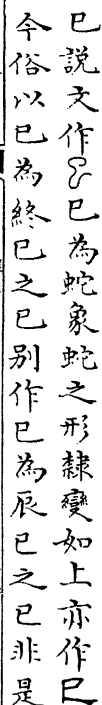 巳說文作巳為蛇象蛇之形隸變如上亦作巳
今俗以已為終已之已別作巳為辰巳之巳非是